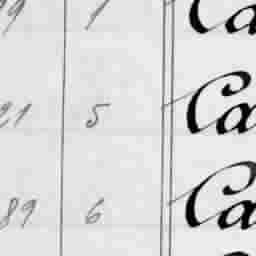 99 1 Ca
21 5 Ca
89 6 Ca